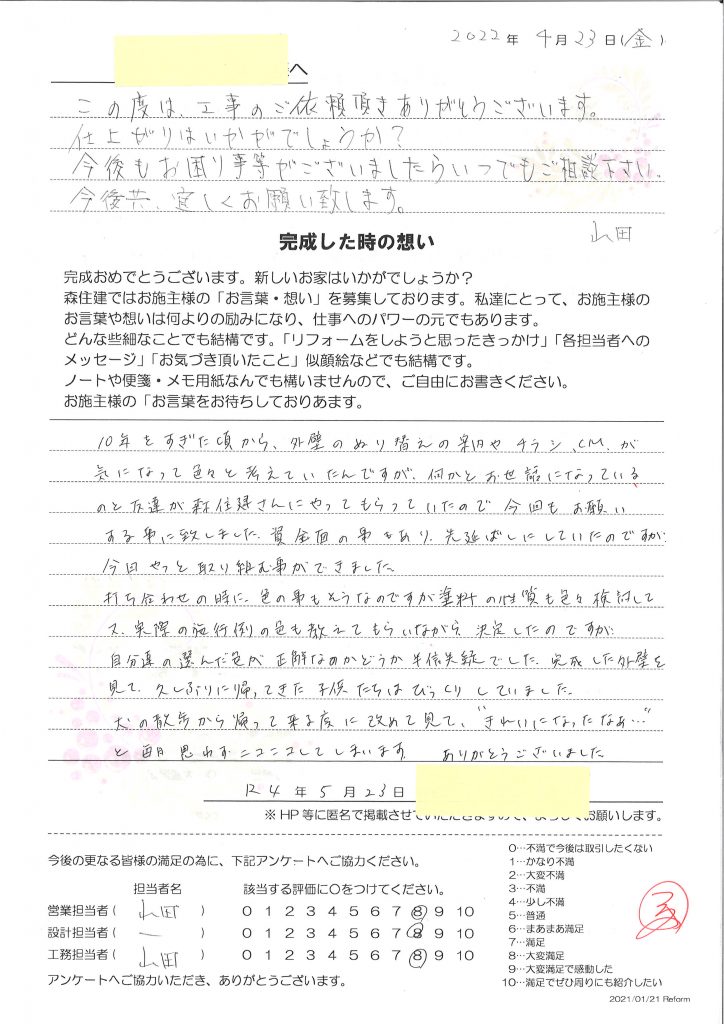 2022年 4月23日(金)
へ
この度は、工事のご依頼頂きありがとうございます。
仕上がりはいかがでしょうか？
今後もお困り事等がございましたらいつでもご相談下さい。
今後共、宜しくお願い致します。
山田
完成した時の想い
完成おめでとうございます。新しいお家はいかがでしょうか？
森住建ではお施主様の「お言葉・想い」を募集しております。私達にとって、お施主様の
お言葉や想いは何よりの励みになり、仕事へのパワーの元でもあります。
どんな些細なことでも結構です。「リフォームをしようと思ったきっかけ」「各担当者への
メッセージ」「お気づき頂いたこと」似顔絵などでも結構です。
ノートや便箋・メモ用紙なんでも構いませんので、ご自由にお書きください。
お施主様の「お言葉をお待ちしておりあます。
10年をすぎた頃から、外壁のぬり替えの案内やチラシ、CM、が
気になって色々と考えていたんですが、何かとお世話になっている
のと友達が森住建さんにやってもらっていたので今回もお願い
する事に致しました。資金面の事もあり、先延ばしにしていたのですが、
今回やっと取り組む事ができました。
打ち合わせの時に、色の事もそうなのですが塗料の性質も色々検討して
又、実際の施行例の色も教えてもらいながら、決定したのですが、
自分達の選んだ色が正解なのかどうか半信失疑でした。完成した外壁を
見て、久しぶりに帰ってきた子供たちはびっくりしていました。
犬の散歩から帰って来る度に改めて見て、"きれいになったなぁ…"
と毎日思わずニコニコしてしまいます。 ありがとうございました。
R4年5月23日
※HP等に匿名で掲載させていただきますので、よろしくお願いします。
今後の更なる皆様の満足の為に、下記アンケートへご協力ください。
担当者名 該当する評価に○をつけてください。
営業担当者( 山田 ) 0 1 2 3 4 5 6 7 8 9 10
設計担当者( ー ) 0 1 2 3 4 5 6 7 8 9 10
工務担当者( 山田 ) 0 1 2 3 4 5 6 7 8 9 10
アンケートへご協力いただき、ありがとうございます。
0…不満で今後は取引したくない
1…かなり不満
2…大変不満
3…不満
4…少し不満
5…普通
6…まあまあ満足
7…満足
8…大変満足
9…大変満足で感動した
10…満足でぜひ周りにも紹介したい
2021/01/21 Reform